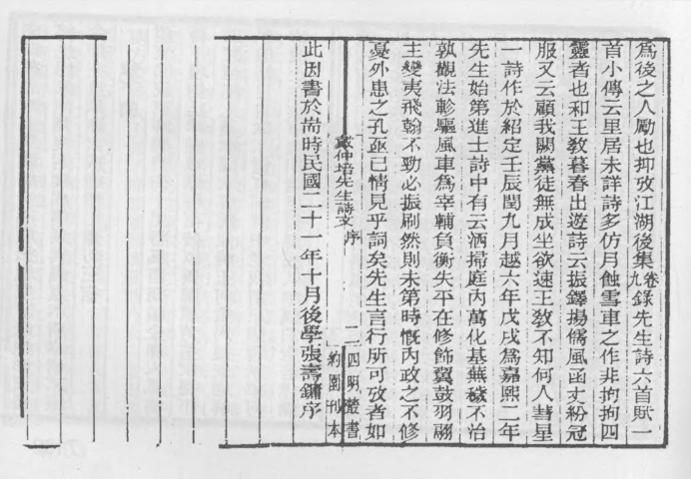 爲後之人勵也抑攷江湖後集卷九錄先生詩六首賦一
首小傳云里居未詳詩多仿月蝕雪車之作非拘拘四
靈者也和王敎暮春出遊詩云振鐸揚儒風函丈紛冠
服又云顧我闕黨徒無成坐欲速王敎不知何人彗星
一詩作於紹定壬辰閏九月越六年戊戌爲嘉熙二年
先生始第進士詩中有云洒掃庭內萬化基蕪穢不治
孰觀法軫驅風車爲宰輔負衡失平在修飾翼鼓羽翮
主變夷飛翰不勁必振刷然則未第時慨內政之不修
憂外患之孔亟已情見乎詞矣先生言行所可攷者如
此因書於耑時民國二十一年十月後學張壽鏞序
戴仲培先生詩文 序
二
四明叢書
約園刊本